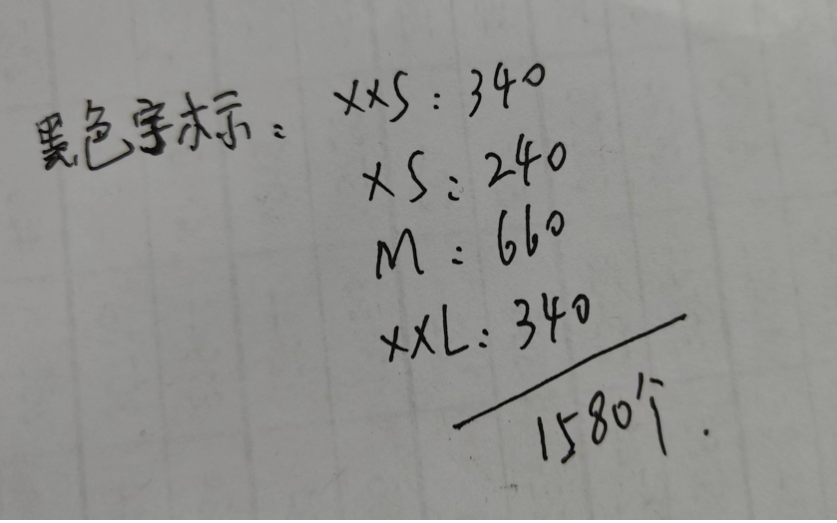 黑色字标: XXS: 340
XS: 240
M: 660
XXL: 340
1580个.